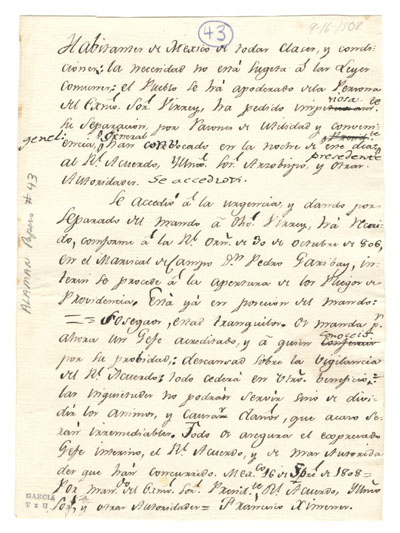 43
9-16-1808
Habitantes de Mexico de todas clases, y condi-
ciones: la necesidad no está sugeta á las Leyes
comunes: el Pueblo se há apoderado dela Persona
del Exmo. Sor. Virrey, ha pedido imperiosa se
su separacion, por razones de utilidad y conveni-
encia, han convocado en la noche de este dia
precedente
al Rl. Acuerdo, Yllmo. Sor. Arzobispo, y otras
Autoridades. Se accedió
Se accedió á la urgencia, y dando por
separado del mando á dho. Virrey, há recai-
do, conforme á la Rl. Orn. de 30 de octubre de 806,
en el Mariscal de Campo Dn. Pedro Garibay, in-
terin se procede á la apertura de los Pliegos de
Providencia. Está yá en posecion del mando:
Sosegaos, estad tranquilos. Os manda pr.
ahora un Gefe acreditado, y á quien conoceis
por su probidad: descansad sobre la vigilancia
del Rl. Acuerdo: todo cederá en vtro. beneficio:
las inquietudes no podrán servir sino de divi-
dir los animos, y causar daños, que acaso se-
rán irremediables. Todo os asegura el expresado
Gefe interino, el Rl. Acuerdo, y de mas Autorida
des que han concurrido. Mexco. 16 de Sbre. de 1808=
Por man.do del Exmo. Sor. Presid.te Rl. Acuerdo, Yllmo
Sor. y otras Autoridades= Francisco Ximenez.
ALAMAN Papers #43
GARCIA